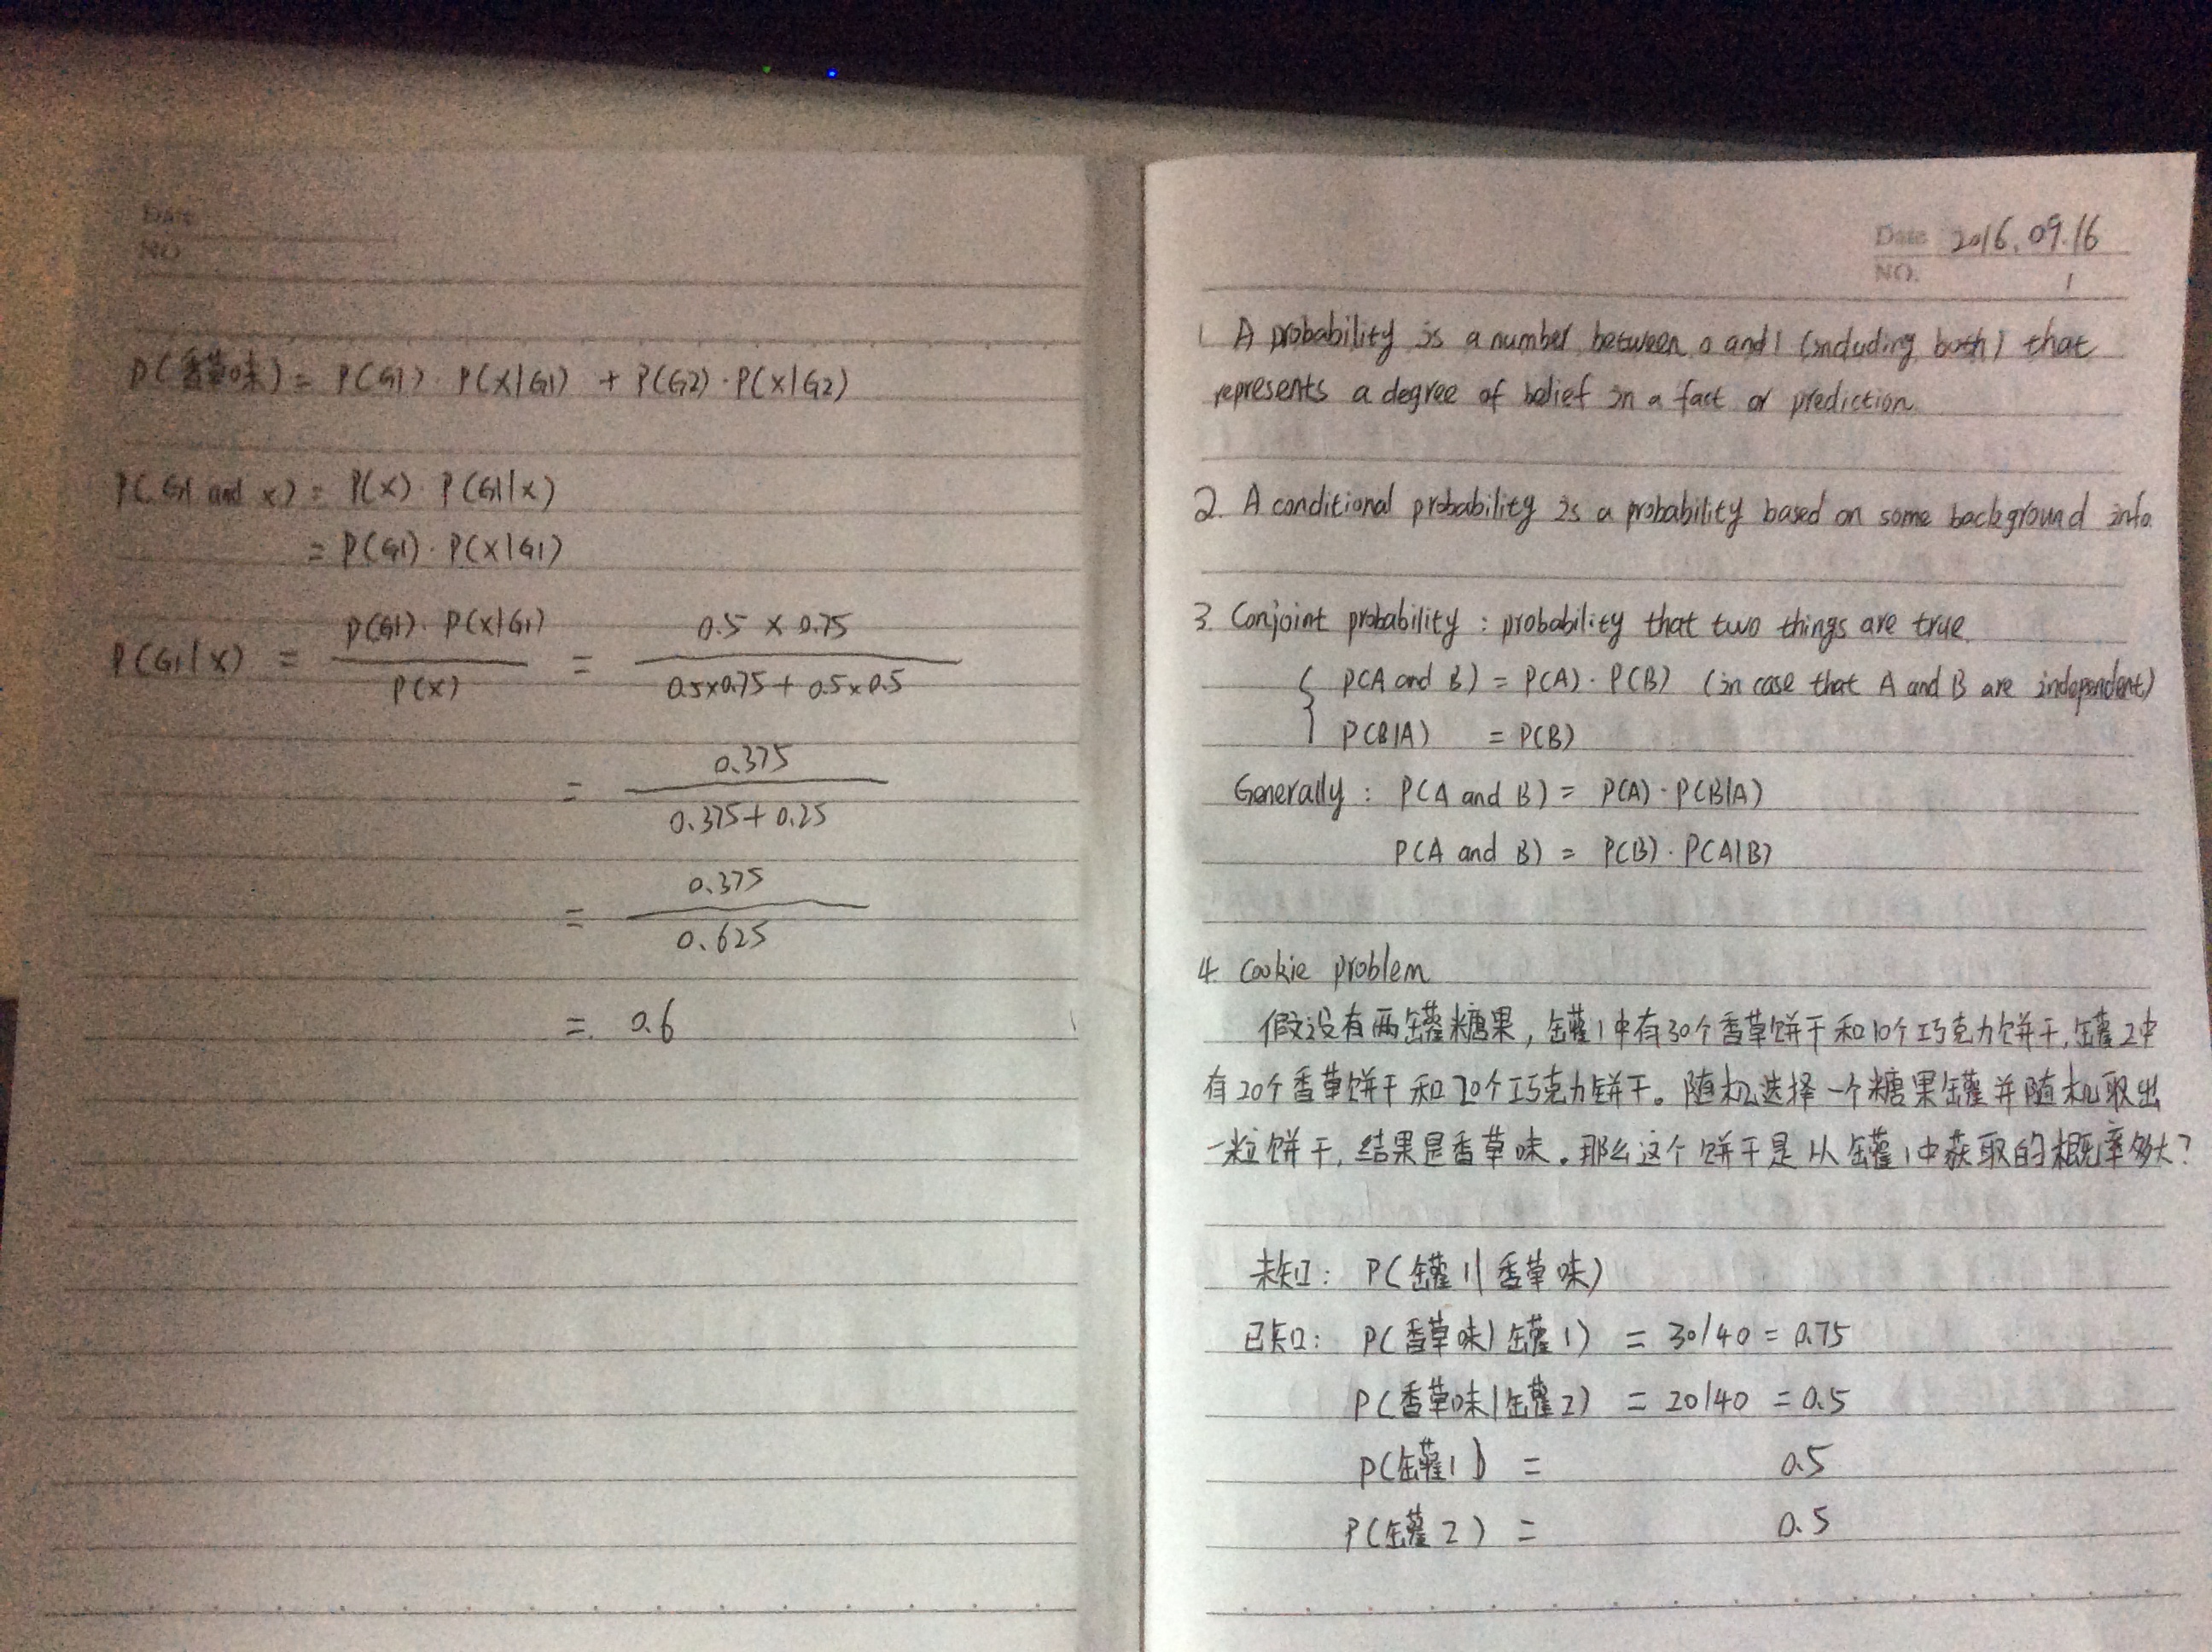 Date
NO
P(香草味) = P(G1) · P(X|G1) + P(G2) · P(X|G2)
P(G1 and X) = P(X) · P(G1|X)
= P(G1) · P(X|G1)
P(G1|X) = P(G1) · P(X|G1) / P(X) = 0.5 × 0.75 / 0.5×0.75 + 0.5×0.5
= 0.375 / 0.375+0.25
= 0.375 / 0.625
= 0.6
Date 2016.09.16
NO. 1
1. A probability is a number between 0 and 1 (including both) that
represents a degree of belief in a fact or prediction.
2. A conditional probability is a probability based on some background info.
3. Conjoint probability : probability that two things are true.
{ P(A and B) = P(A) · P(B) (in case that A and B are independent)
P(B|A) = P(B)
Generally : P(A and B) = P(A) · P(B|A)
P(A and B) = P(B) · P(A|B)
4. Cookie problem
假设有两罐糖果，罐1中有30个香草饼干和10个巧克力饼干，罐2中
有20个香草饼干和20个巧克力饼干。随机选择一个糖果罐并随机取出
一粒饼干，结果是香草味。那么这个饼干是从罐1中获取的概率多大？
未知： P(罐1|香草味)
已知： P(香草味|罐1) = 30/40 = 0.75
P(香草味|罐2) = 20/40 = 0.5
P(罐1) = 0.5
P(罐2) = 0.5